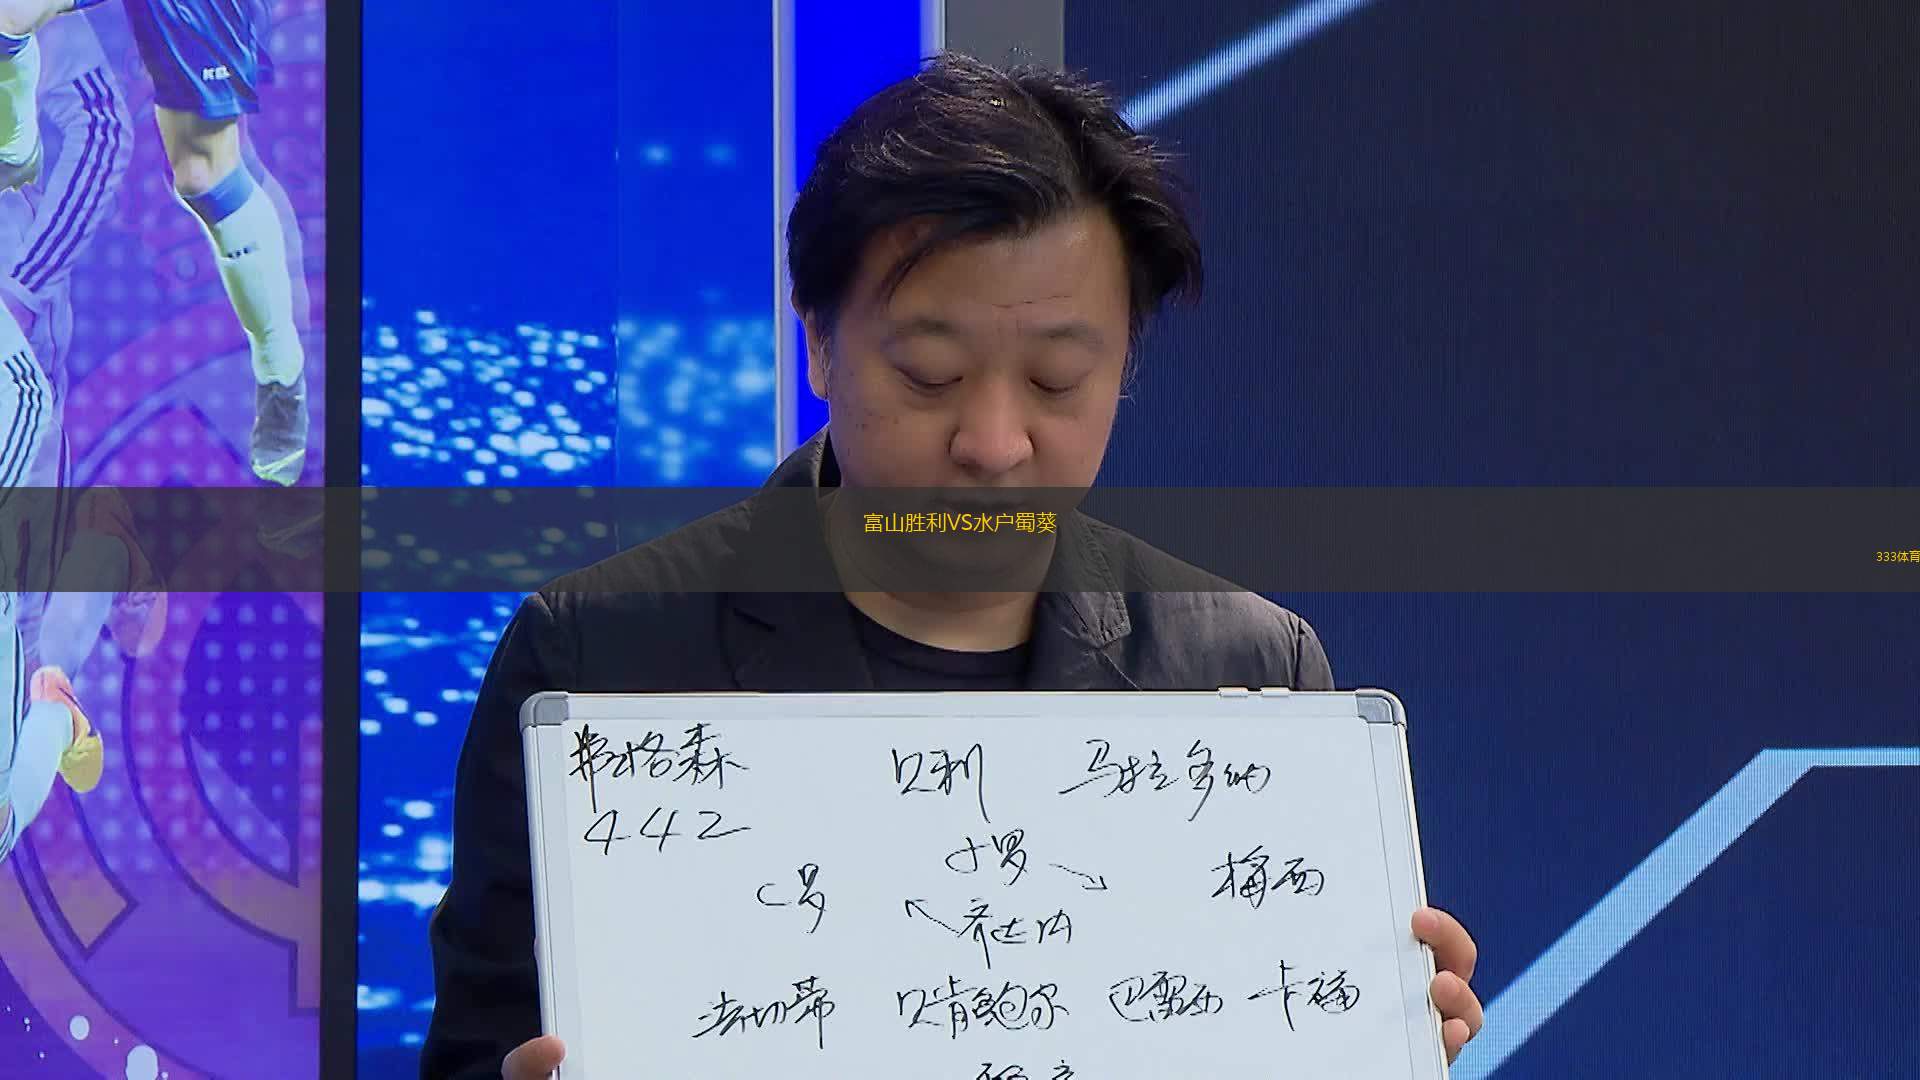 富山胜利VS水户蜀葵
333体育
弗格森 贝利 马拉多纳
442
小罗
C罗 梅西
齐达内
法切蒂 贝肯鲍尔 巴雷西 卡福